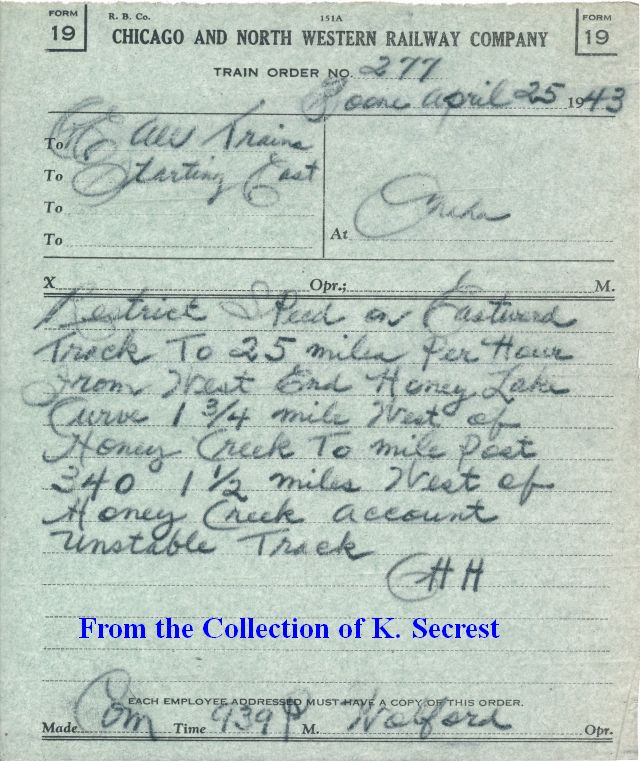 FORM 19
R. B. Co. 151A
FORM 19
CHICAGO AND NORTH WESTERN RAILWAY COMPANY
TRAIN ORDER NO. 277
Boone April 25 1943
To C&E All Trains
To Starting East
To
To
At Omaha
X Opr.; M.
Restrict Speed on Eastward
Track To 25 miles Per Hour
From West End Honey Lake
Curve 1 3/4 mile West of
Honey Creek To mile Post
340 1 1/2 miles West of
Honey Creek account
Unstable Track
CHH
From the Collection of K. Secrest
EACH EMPLOYEE ADDRESSED MUST HAVE A COPY OF THIS ORDER.
Made Com Time 939 P M. Wolford Opr.